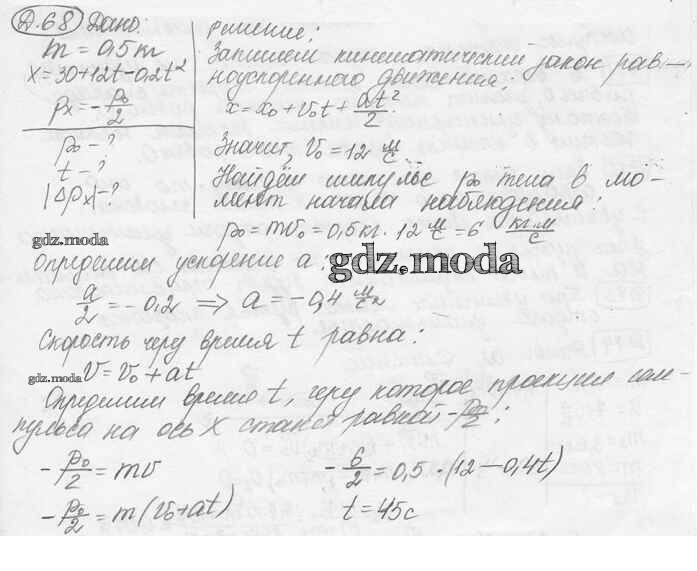 Д.68 Дано:
m = 0,5 кг
x = 30+12t-0,2t²
pₓ = -p₀/2
p₀ - ?
t - ?
|Δpₓ| - ?
gdz.moda
Решение:
Запишем кинематический закон рав-
ноускоренного движения:
x = x₀ + v₀t + at²/2
Значит, v₀ = 12 м/с
Найдём импульс p₀ тела в мо-
мент начала наблюдения:
p₀ = mv₀ = 0,5 кг · 12 м/с = 6 кг·м/с
gdz.moda
Определим ускорение a:
a/2 = -0,2 ⇒ a = -0,4 м/с²
Скорость через время t равна:
gdz.moda
v = v₀ + at
Определим время t, через которое проекция им-
пульса на ось X станет равной -p₀/2:
-p₀/2 = mv
-p₀/2 = m(v₀+at)
-6/2 = 0,5 · (12-0,4t)
t = 45 с